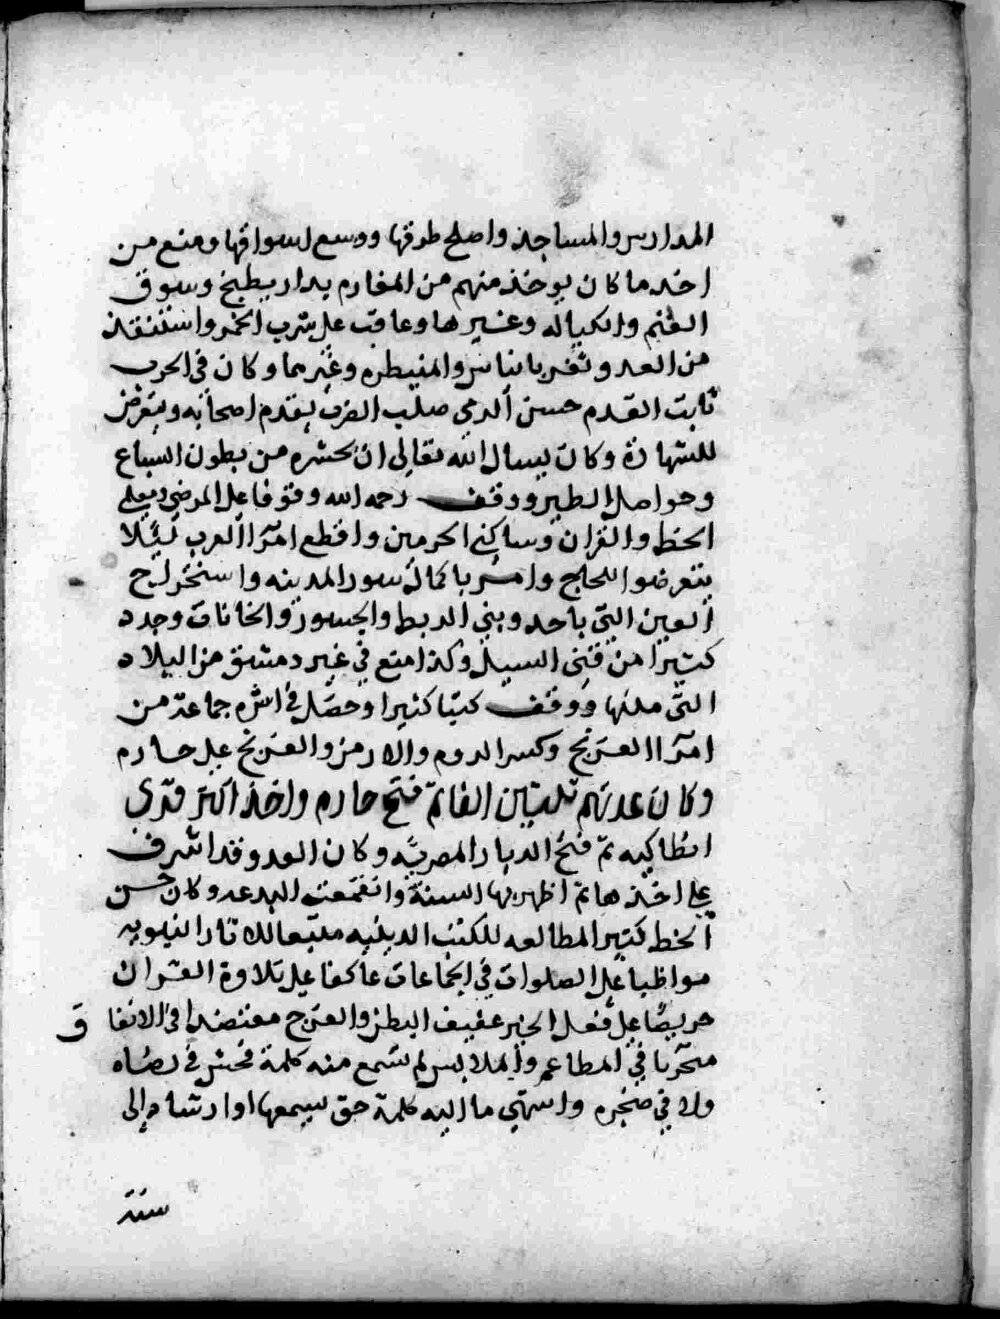 المدارس والمساجد واصلح طرقها ووسع اسواقها ومنع من
اخذ ما كان يوخذ منهم من المغارم بدار بطيخ وسوق
الغنم والكياله وغيرها وعاقب على شرب الخمر واستنقذ
من العدو ثغر بانياس والمنيطره وغيرهما وكان في الحرب
ثابت القدم حسن الرمي صلب الضرب يقدم اصحابه ويتعرض
للشهادة وكان يسال الله تعالى ان يحشره من بطون السباع
وحواصل الطير ووقف رحمه الله وقوفا على المرضى ومعلمي
الخط والقران وساكني الحرمين واقطع امرآ العرب ليئلا
يتعرضوا للحاج وامر باكمال سور المدينه واستخراج
العين التي باحد وبني الربط والجسور والخانات وجدد
كثيرا من قني السبيل وكذا صنع في غير دمشق من البلاد
التي ملكها ووقف كتبا كثيرا وحصل في اسره جماعة من
امرآ الفرنج وكسر الروم والارمن والفرنج على حارم
وكان عدتهم ثلثين الفا ثم فتح حارم واخذ اكثر قرى
انطاكيه ثم فتح الديار المصريه وكان العدو قد اشرف
على اخذها ثم اظهر بها السنة وانقمعت البدعه وكان حسن
الخط كثير المطالعه للكتب الدينيه متبعا للاثار النبويه
مواظبا على الصلوات في الجماعات عاكفا على تلاوة القران
حريصا على فعل الخير عفيف البطن والفرج مقتصدا في الانفاق
متحريا في المطاعم والملابس لم تسمع منه كلمة فحش في رضاه
ولا في ضجره واشهى ما اليه كلمة حق يسمعها او ارشاد الى
سنة